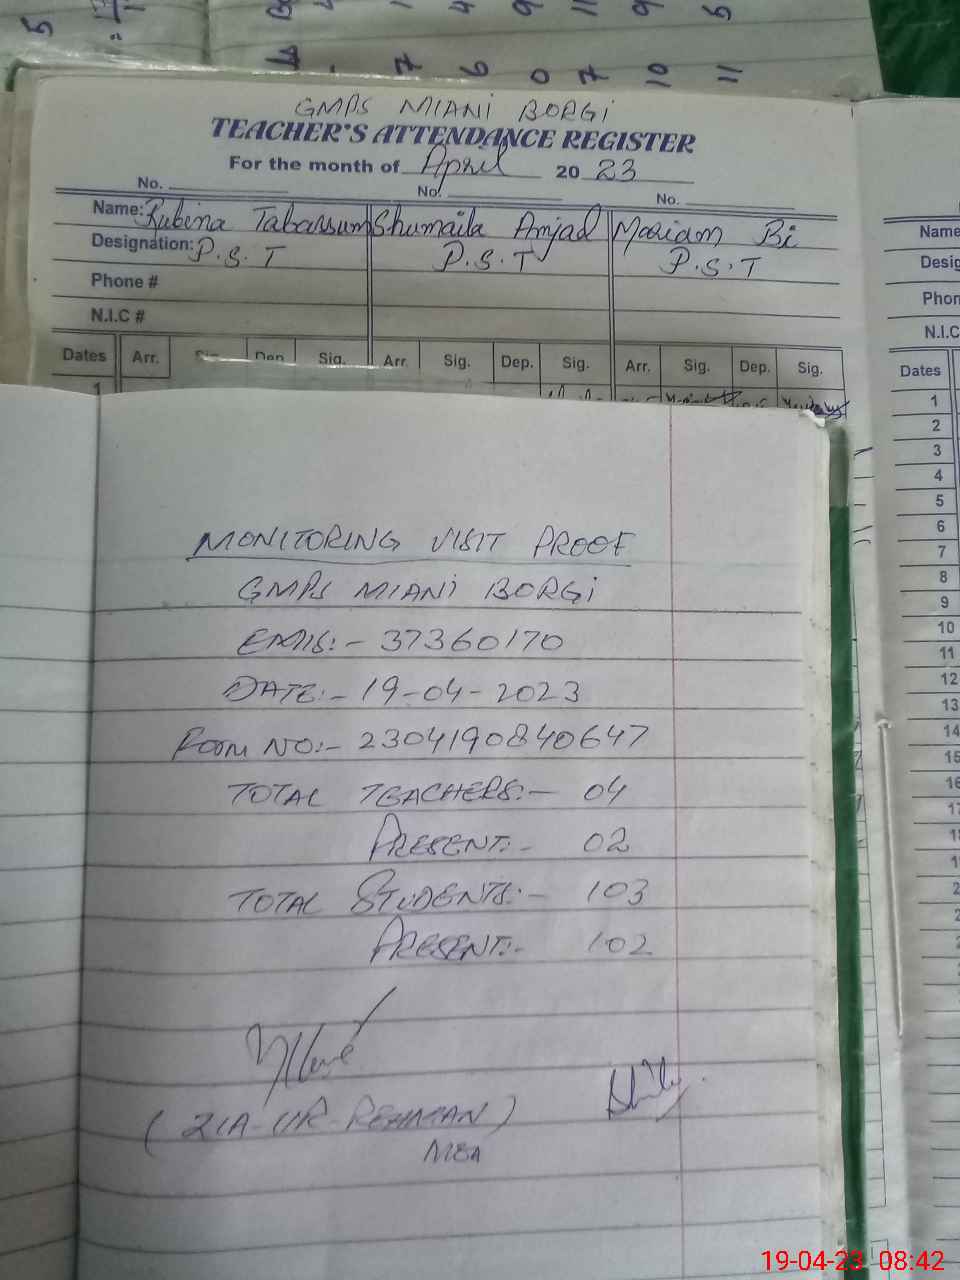 GMPS MIANI BORGI
TEACHER'S ATTENDANCE REGISTER
For the month of April 2023
No. No. No.
Name: Rubina Tabassum Shumaila Amjad Mariam Bi
Designation: P.S.T P.S.T P.S.T
Phone #
N.I.C #
Dates Arr. Sig. Dep. Sig. Arr. Sig. Dep. Sig. Arr. Sig. Dep. Sig.
1
MONITORING VISIT PROOF
GMPS MIANI BORGI
EMIS:- 37360170
DATE:- 19-04-2023
ROOM NO:- 2304190840647
TOTAL TEACHERS:- 04
PRESENT:- 02
TOTAL STUDENTS:- 103
PRESENT:- 102
(ZIA-UR-REHMAN)
MEA
Name
Desig
Phon
N.I.C
Dates
1
2
3
4
5
6
7
8
9
10
11
12
13
14
15
16
19-04-23 08:42